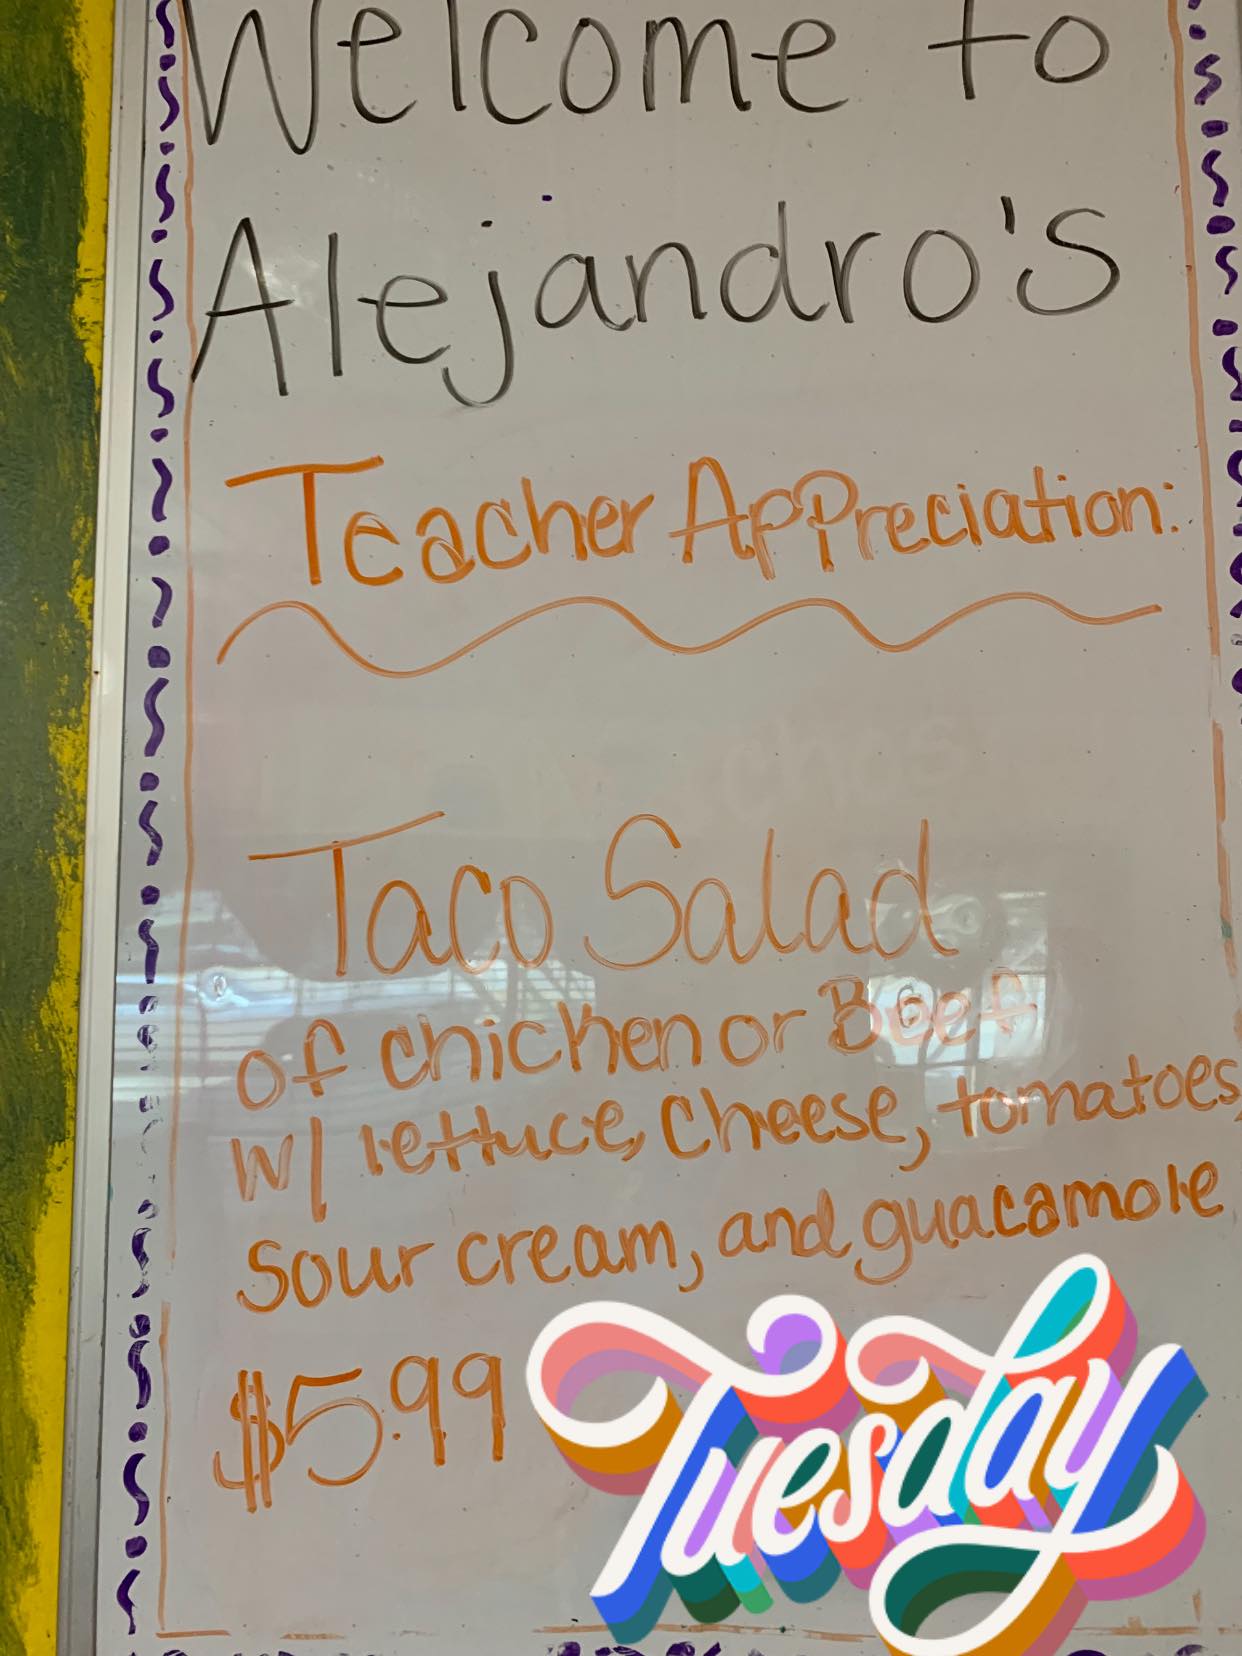 Welcome to
Alejandro's
Teacher Appreciation:
Taco Salad
of chicken or Beef
w/ lettuce, cheese, tomatoes,
sour cream, and guacamole
$5.99
Tuesday